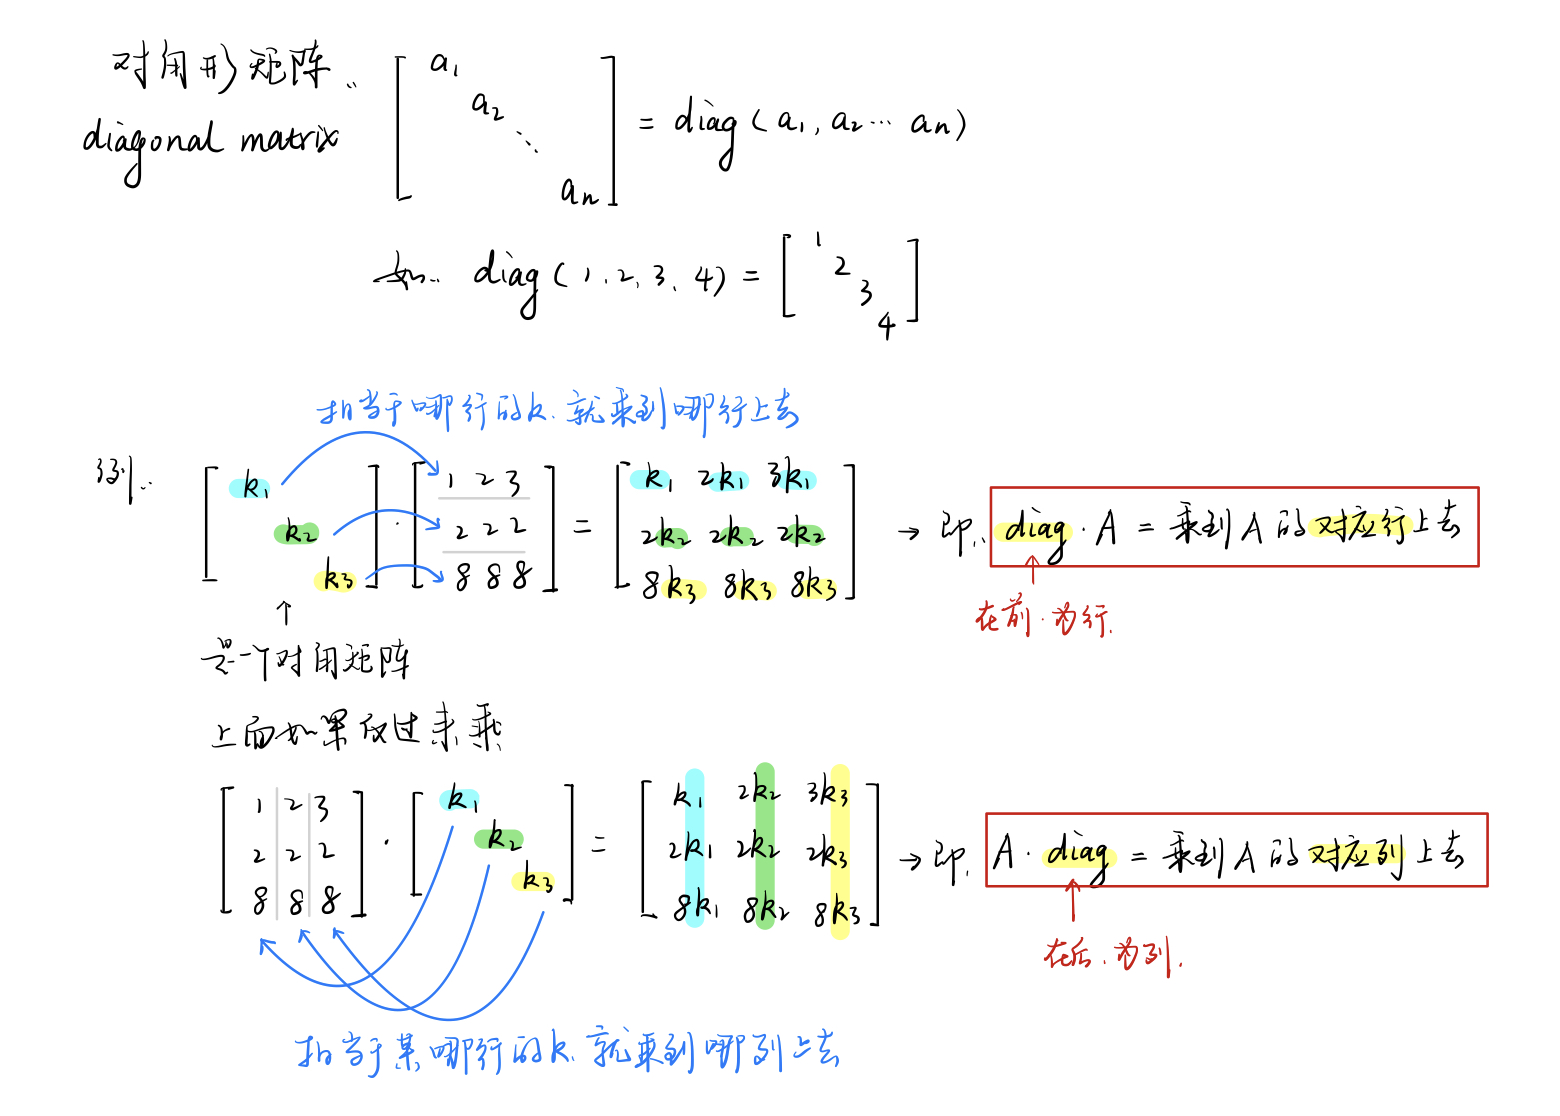 对角形矩阵:
diagonal matrix
[ a₁ a₂ ⋱ aₙ ] = diag ( a₁, a₂ ⋯ aₙ )
如: diag ( 1, 2, 3, 4 ) = [ 1 2 3 4 ]
相当于哪行的k, 就乘到哪行上去
例:
[ k₁ k₂ k₃ ] · [ 1 2 3
2 2 2
8 8 8 ] = [ k₁ 2k₁ 3k₁
2k₂ 2k₂ 2k₂
8k₃ 8k₃ 8k₃ ] → 即: diag · A = 乘到 A 的对应行上去
↑
在前, 为行.
↑
是一个对角矩阵
上面如果反过来乘
[ 1 2 3
2 2 2
8 8 8 ] · [ k₁ k₂ k₃ ] = [ k₁ 2k₂ 3k₃
2k₁ 2k₂ 2k₃
8k₁ 8k₂ 8k₃ ] → 即, A · diag = 乘到 A 的对应列上去
↑
在后, 为列.
相当于某哪行的k, 就乘到哪列上去